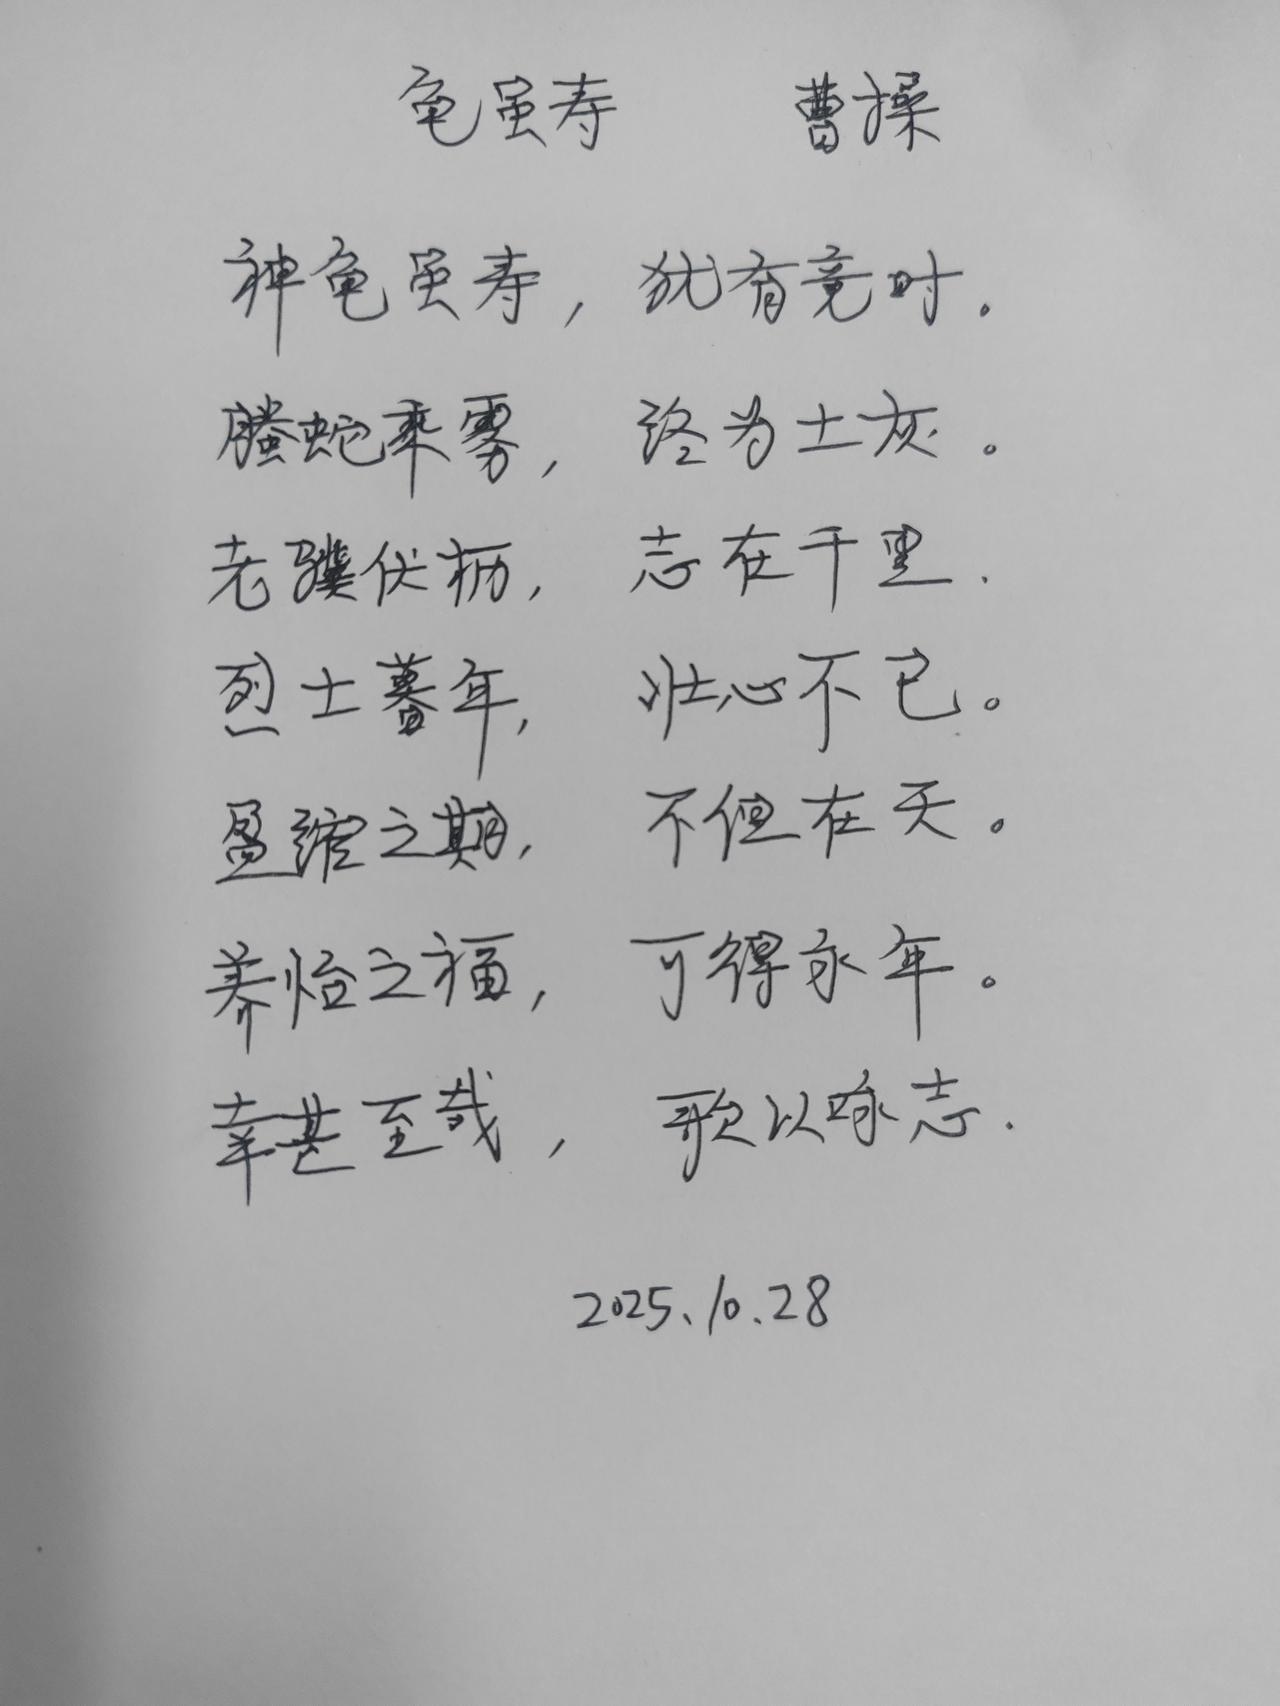 龟虽寿 曹操
神龟虽寿，犹有竟时。
螣蛇乘雾，终为土灰。
老骥伏枥，志在千里.
烈士暮年，壮心不已。
盈缩之期，不但在天。
养怡之福，可得永年。
幸甚至哉，歌以咏志.
2025.10.28